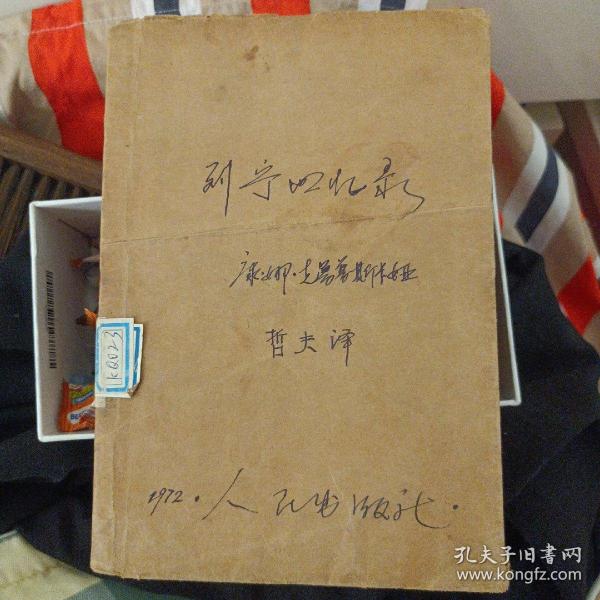 列宁回忆录
康·娜·克普普斯卡娅
哲夫译
KQ023
1972·人民出版社·
孔夫子旧书网
www.kongfz.com